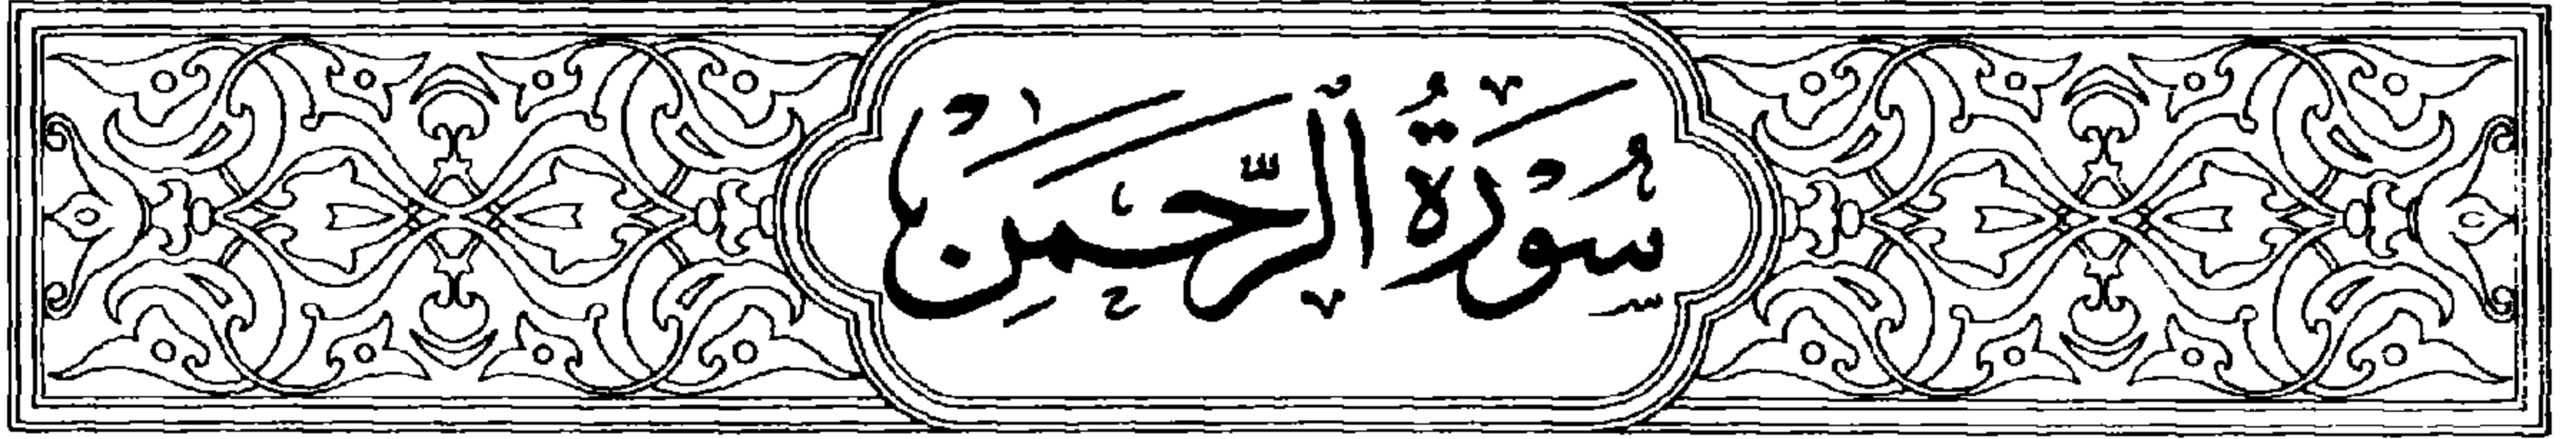 سُورَةُ ٱلرَّحْمَنِ